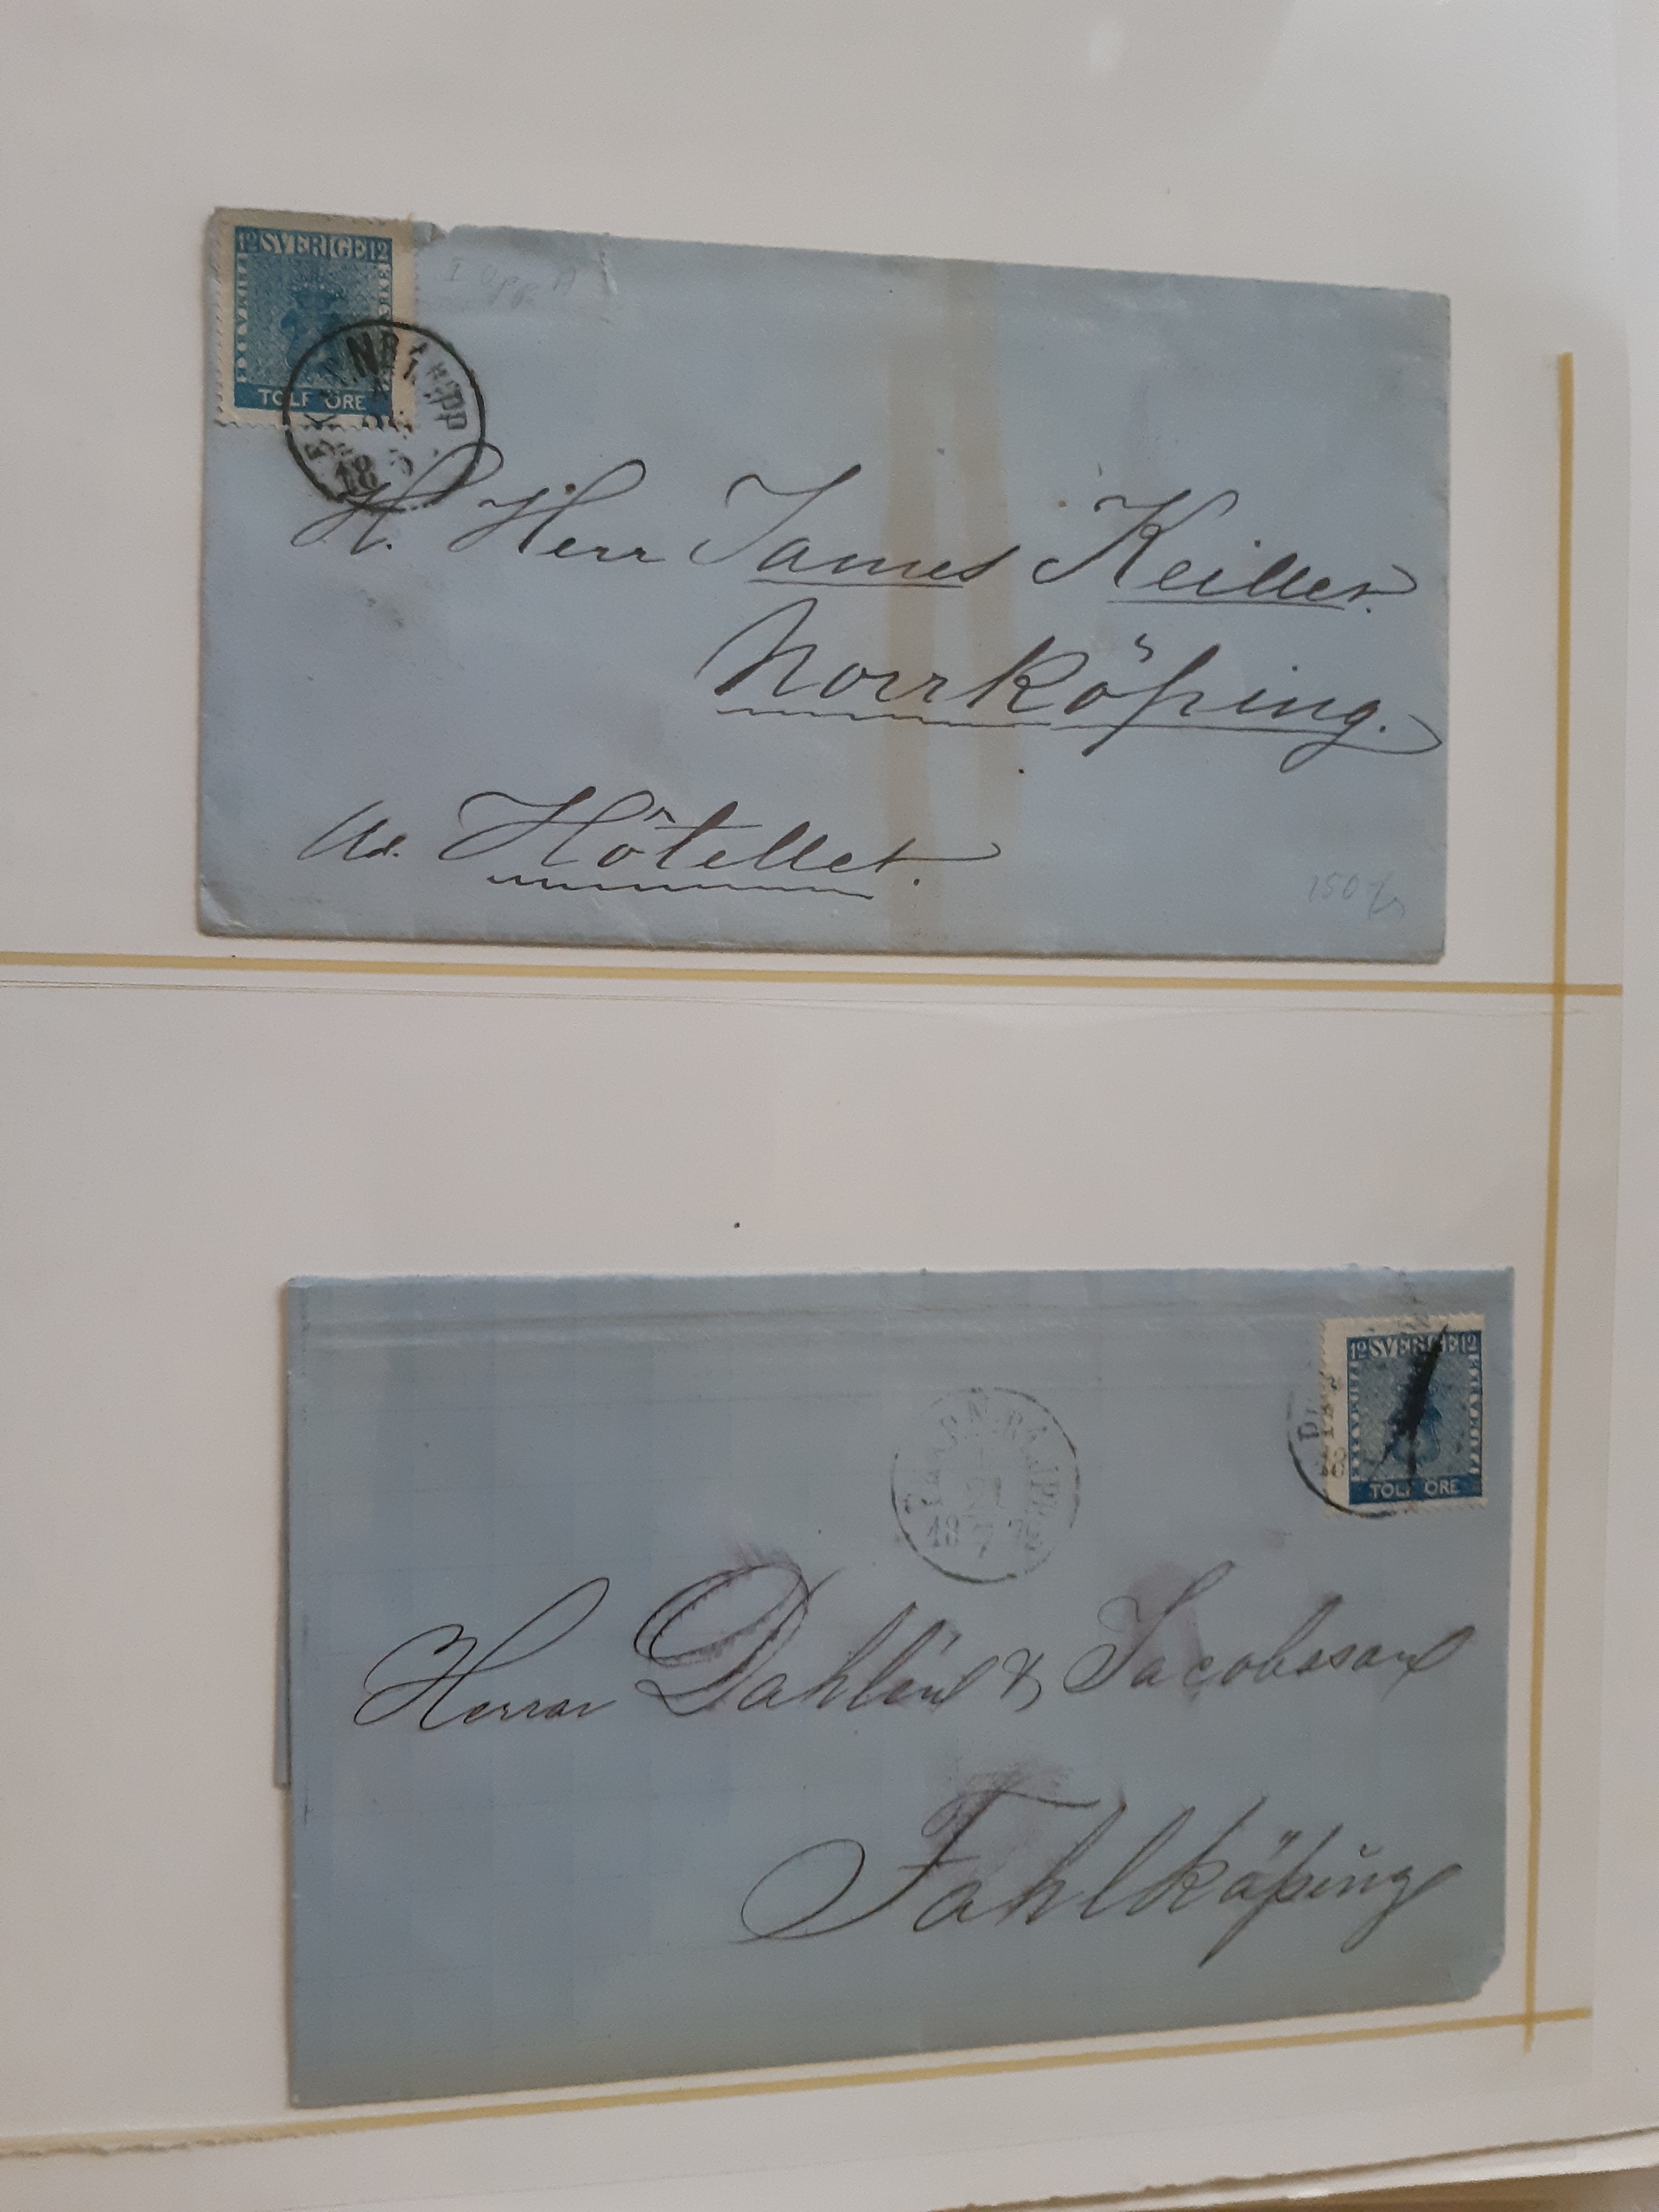 12 SVERIGE 12
TOLF ÖRE
18
I Upp A
H. Herr James Keiller.
Norrköping.
Ad. Hôtellet.
150
12 SVERIGE 12
TOLF ÖRE
18
Herrar Dahlén & Jacobsson
Fahlköping